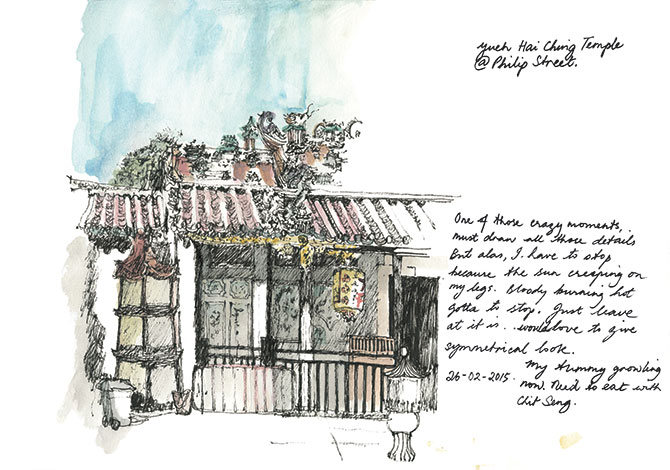 Yueh Hai Ching Temple
@ Philip Street.
One of those crazy moments,
must draw all those details
But alas, I have to stop
because the sun creeping on
my legs. Bloody burning hot
gotta to stop. Just leave
at it is.. would love to give
symmetrical look.
My tummy growling
26-02-2015. now. Need to eat with
Chit Seng.